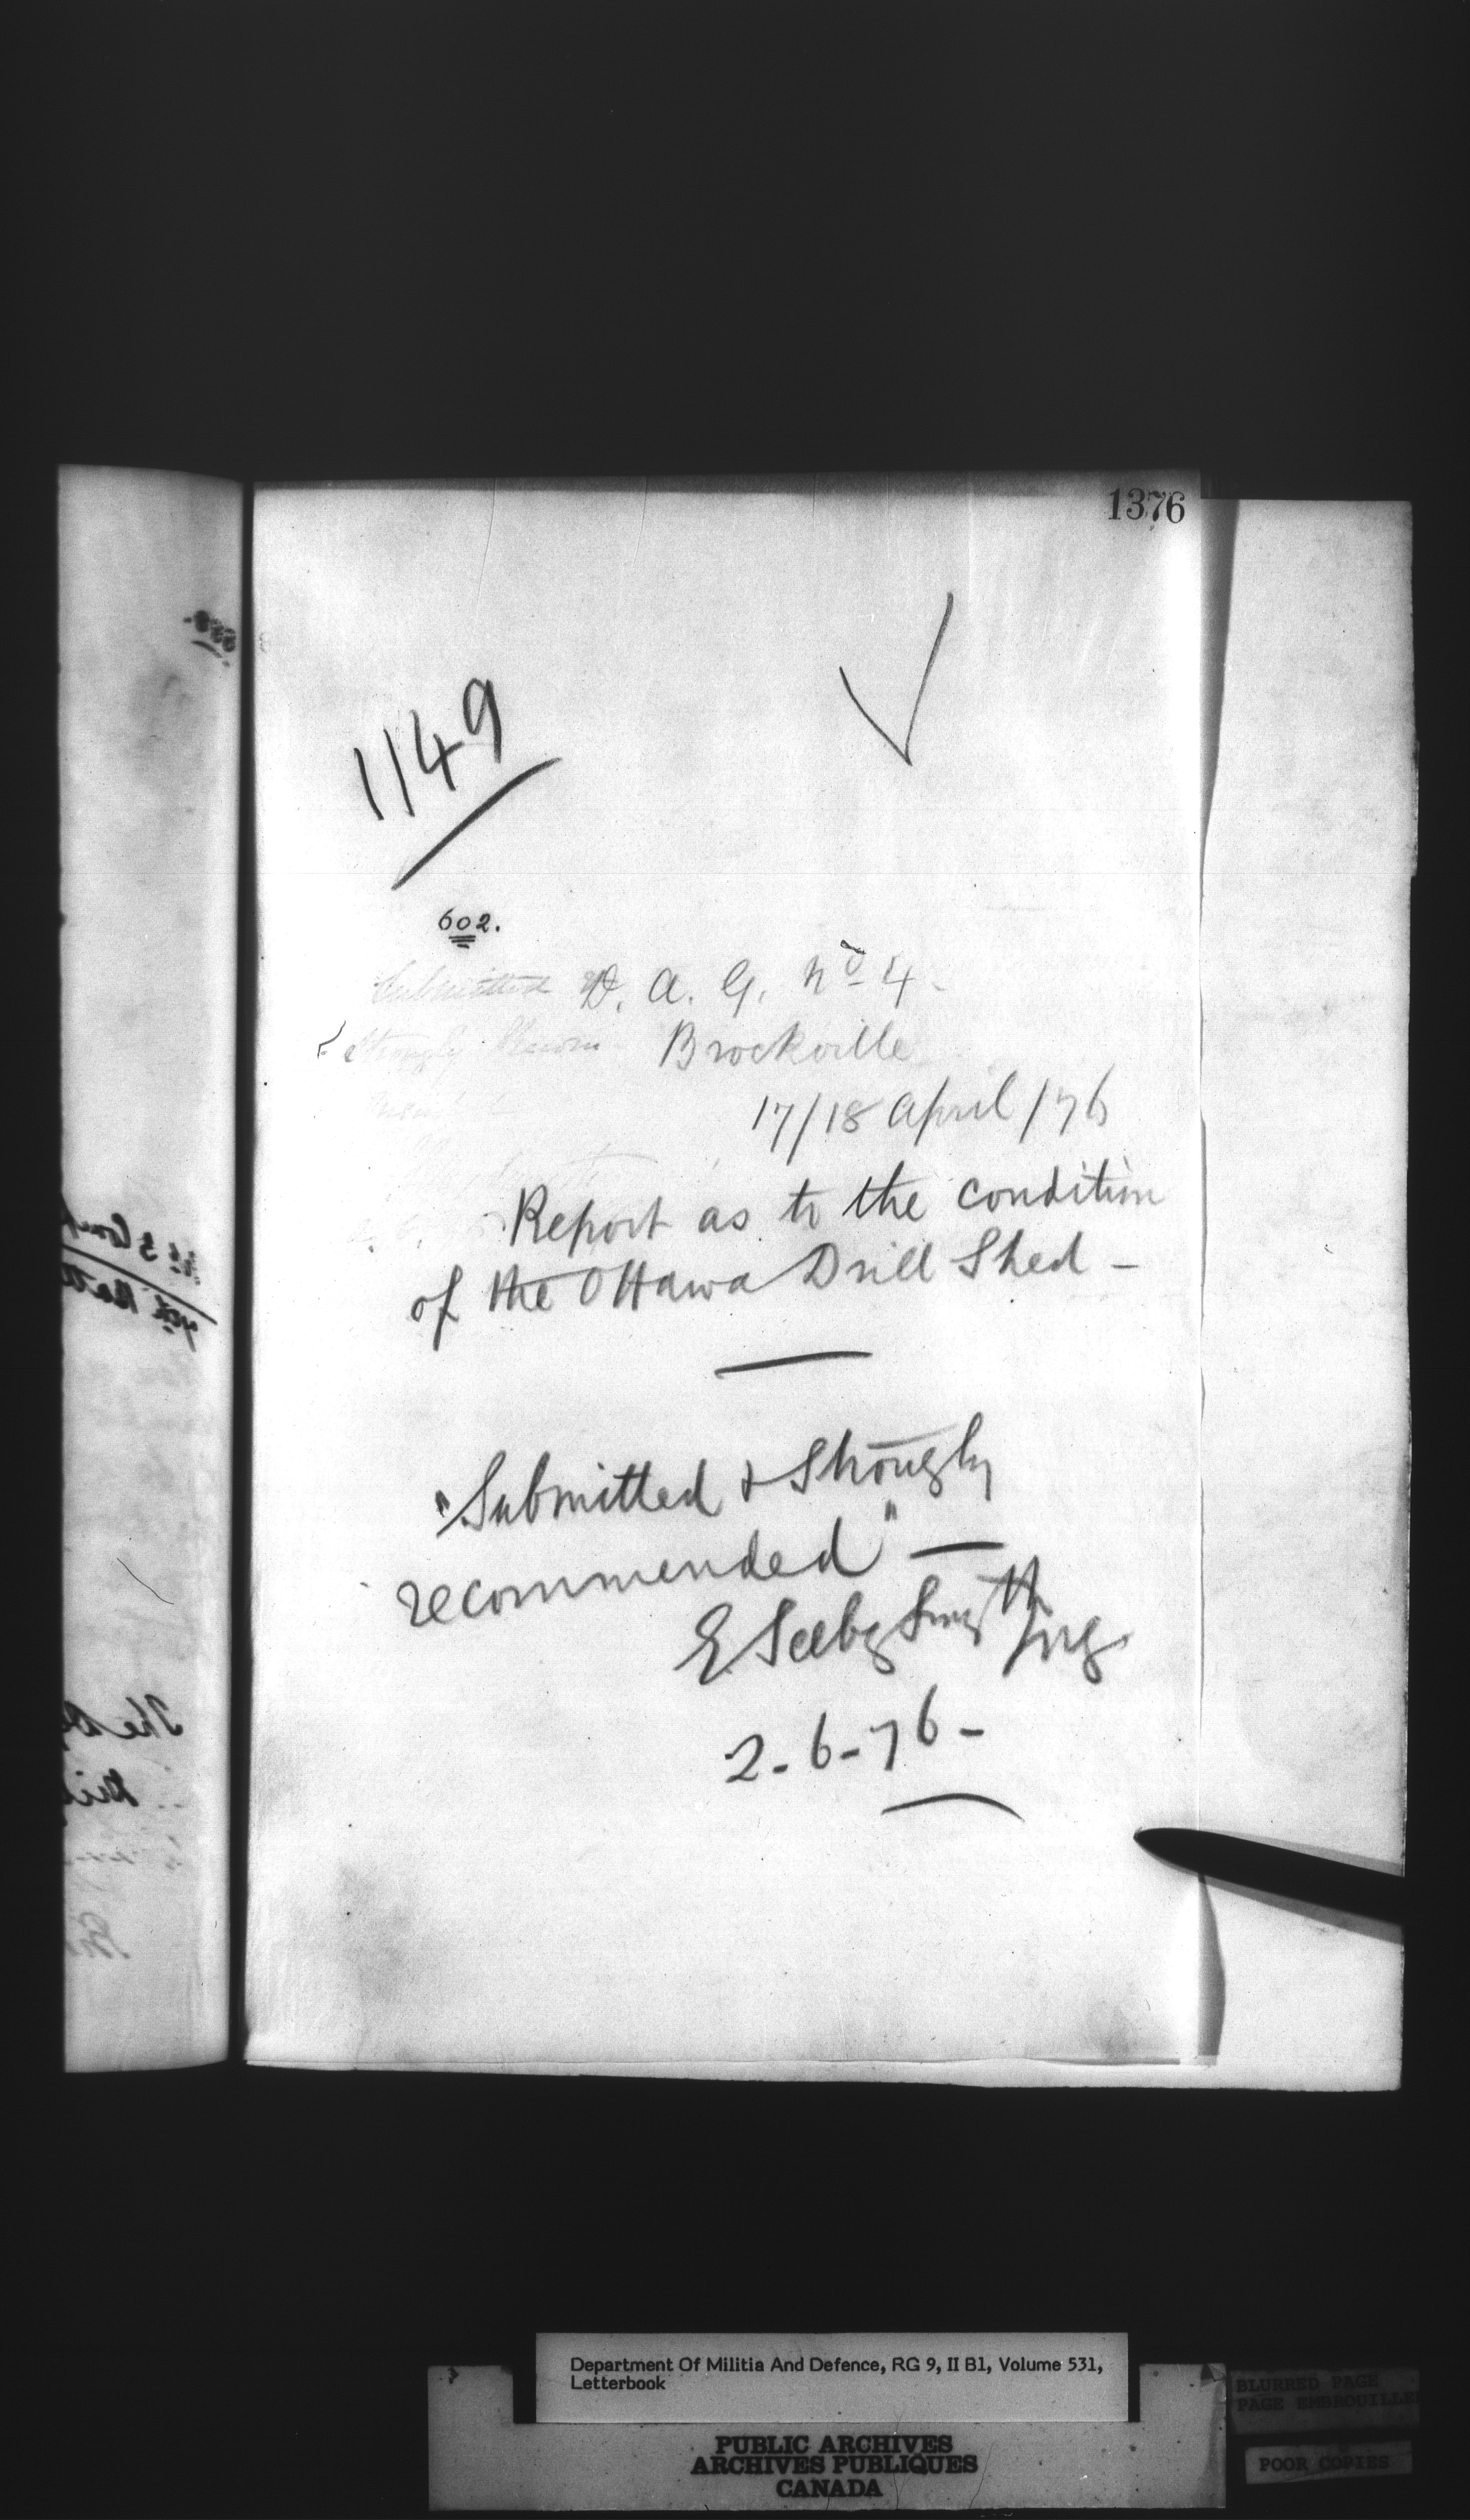 1376
1149
602.
Submitted D. A. G. No 4 -
Strongly Brockville
17/18 April /76
Report as to the condition
of the Ottawa Drill Shed -
"Submitted & Strongly
recommended" —
E Selby Smyth
2-6-76-
Department Of Militia And Defence, RG 9, II B1, Volume 531,
Letterbook
PUBLIC ARCHIVES
ARCHIVES PUBLIQUES
CANADA
BLURRED PAGE
PAGE EMBROUILLE
POOR COPIES